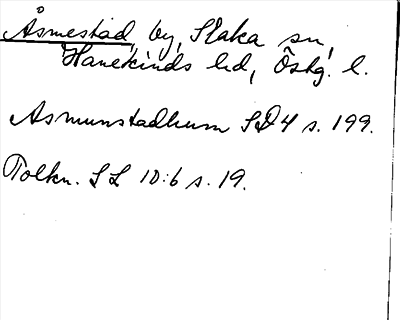 Åsmestad, by, Slaka sn,
Hanekinds hd, Östg. l.
Asmunstadhum SD 4 s. 199.
Tolkn. SL 10:6 s. 19.